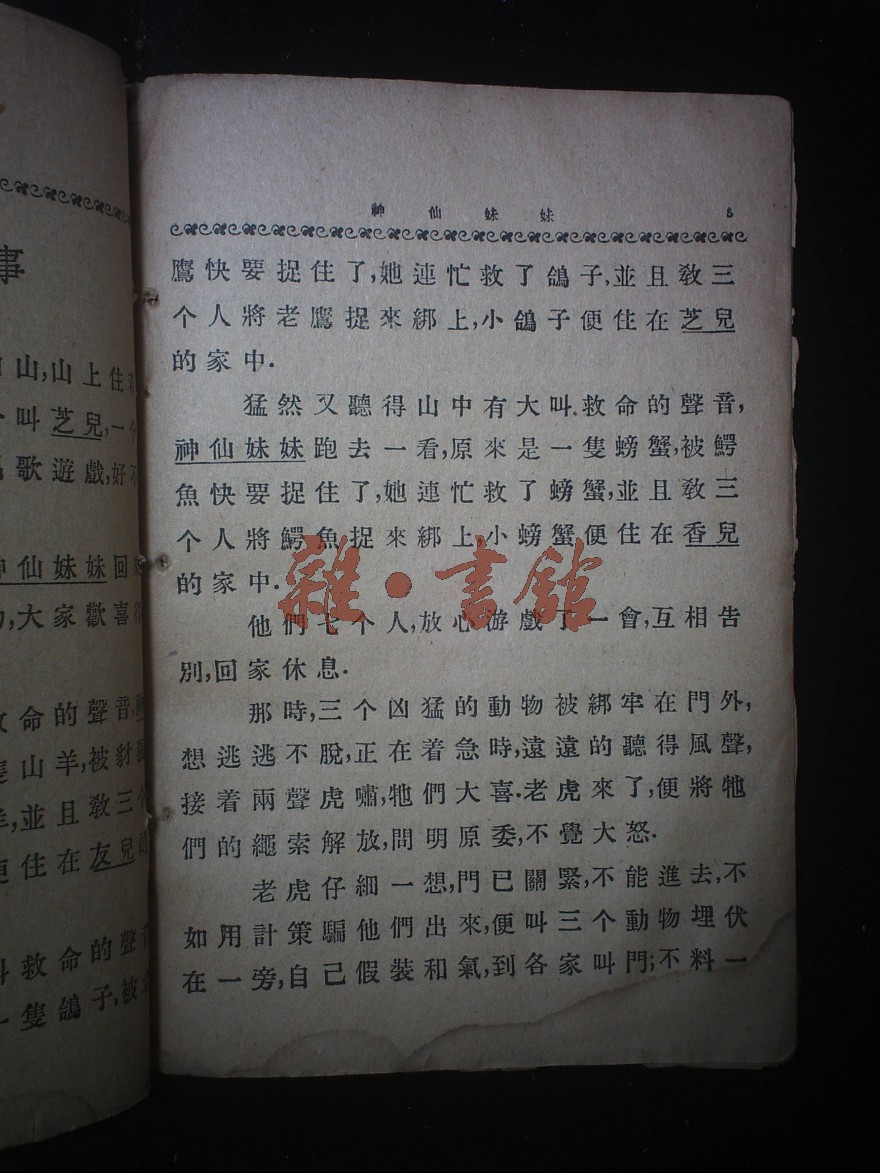 事
山,山上住
叫芝兒,一个
歌遊戲,好不
仙妹妹回
,大家歡喜得
救命的聲音,神
隻山羊,被豺狼
,並且教三个
便住在友兒的
叫救命的聲音
一隻鴿子,被老
神仙妹妹 5
鷹快要捉住了,她連忙救了鴿子,並且教三
个人將老鷹捉來綁上,小鴿子便住在芝兒
的家中.
猛然又聽得山中有大叫救命的聲音,
神仙妹妹跑去一看,原來是一隻螃蟹,被鱷
魚快要捉住了,她連忙救了螃蟹,並且教三
个人將鱷魚捉來綁上,小螃蟹便住在香兒
的家中.
他們七个人,放心游戲了一會,互相告
別,回家休息.
那時,三个凶猛的動物被綁牢在門外,
想逃逃不脫,正在着急時,遠遠的聽得風聲,
接着兩聲虎嘯,牠們大喜.老虎來了,便將牠
們的繩索解放,問明原委,不覺大怒.
老虎仔細一想,門已關緊,不能進去,不
如用計策騙他們出來,便叫三个動物埋伏
在一旁,自己假裝和氣,到各家叫門;不料一
雜·書館